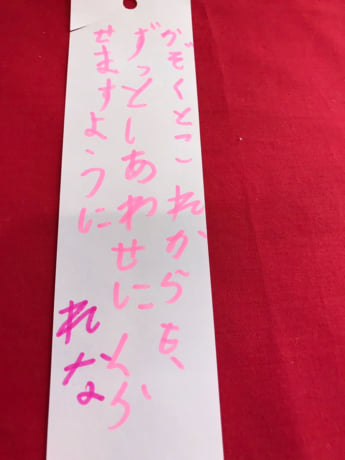 かぞくとこれからも、
ずっとしあわせにくら
せますように
れな